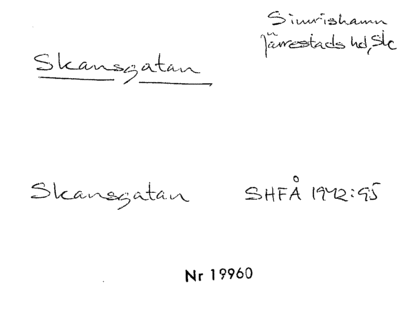 Simrishamn
Järrestads hd, Sk
Skansgatan
Skansgatan SHFÅ 1942:95
Nr 19960